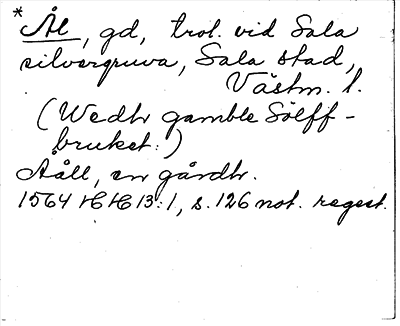 * Ål, gd, trol. vid Sala
silvergruva, Sala stad,
Västm. l.
(Wedh gamble Sölff-
bruket:)
Aåll, en gårdh.
1564 HH 13:1, s. 126 not. regest.